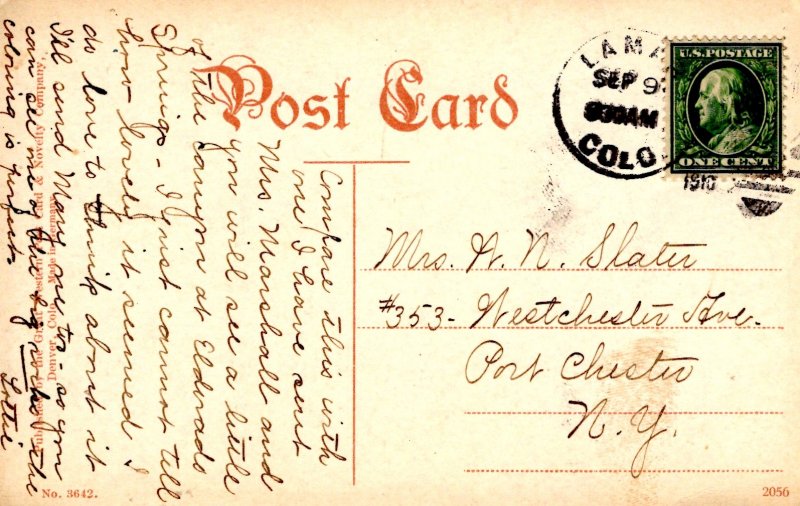 Post Card
LAMA
SEP 9
830AM
COLO
1910
U.S. POSTAGE
ONE CENT
Compare this with
one I have sent
Mrs. Marshall and
you will see a little
of the Canyon at Eldorado
Springs - I just cannot tell
how lovely it seemed. I
do love to think about it
I'll send Mary one too - so you
can see one of the big the
coloring is perfect
Lottie
Mrs. A. N. Slater
#353 - Westchester Ave.
Port Chester
N.Y.
& Novelty Company,
Denver, Colo. Made in Germany
No. 3642.
2056